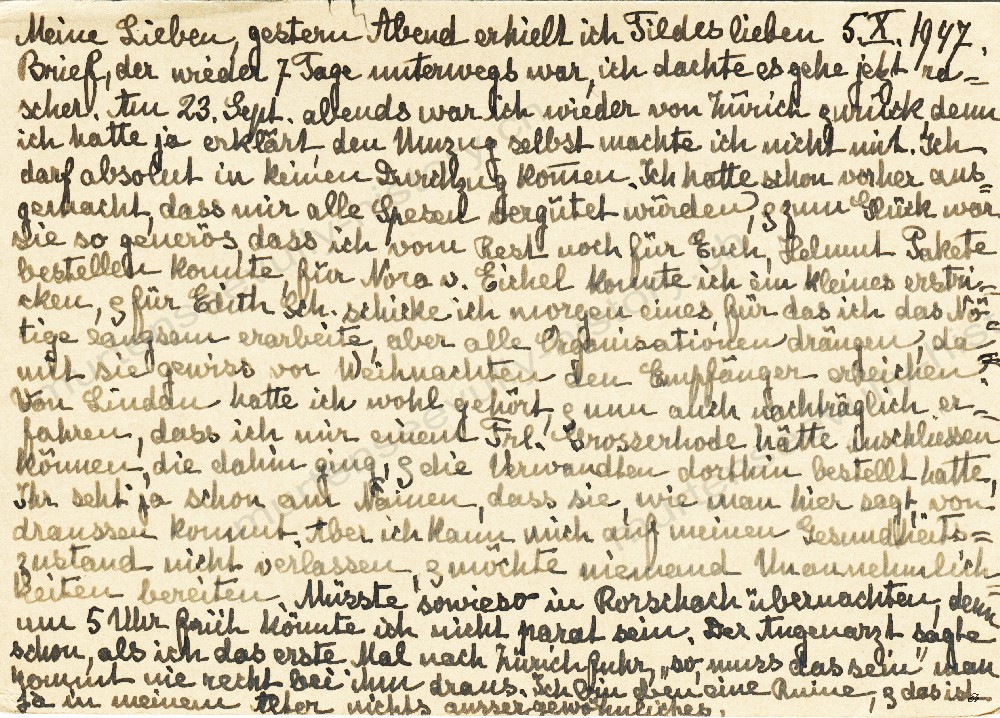 Meine Lieben, gestern Abend erhielt ich Tildes lieben 5.X.1947.
Brief, der wieder 7 Tage unterwegs war, ich dachte es gehe jetzt ra=
scher. Am 23. Sept. abends war ich wieder von Zürich zurück denn
ich hatte ja erklärt, den Umzug selbst machte ich nicht mit. Ich
darf absolut in keinen Durchzug kommen. Ich hatte schon vorher aus=
gemacht, dass mir alle Spesen vergütet würden, & zum Glück war
sie so generös dass ich vom Rest noch für Euch, Helmut Pakete
bestellen konnte, für Nora v. Eichel konnte ich ein kleines erstri=
cken, & für Edith Sch. schicke ich morgen eines, für das ich das Nö=
tige langsam erarbeite, aber alle Organisationen drängen, da
mit sie gewiss vor Weihnachten den Empfänger erreichen.
Von Lindau hatte ich wohl gehört, & nun auch nachträglich er=
fahren, dass ich mir einem Frl. Grosserhode hätte anschliessen
können, die dahin ging, & die Verwandten dorthin bestellt hatte,
Ihr seht ja schon am Namen, dass sie, wie man hier sagt, von
draussen kommt. Aber ich kann mich auf meinen Gesundheits=
zustand nicht verlassen, & möchte niemand Unannehmlich
keiten bereiten. Müsste sowieso in Rorschach übernachten, denn
um 5 Uhr früh könnte ich nicht parat sein. Der Augenarzt sagte
schon, als ich das erste Mal nach Zürich fuhr, "so, muss das sein" man
kommt nie recht bei ihm draus. Ich bin eben eine Ruine, & das ist
ja in meinem Alter nichts aussergewöhnliches.